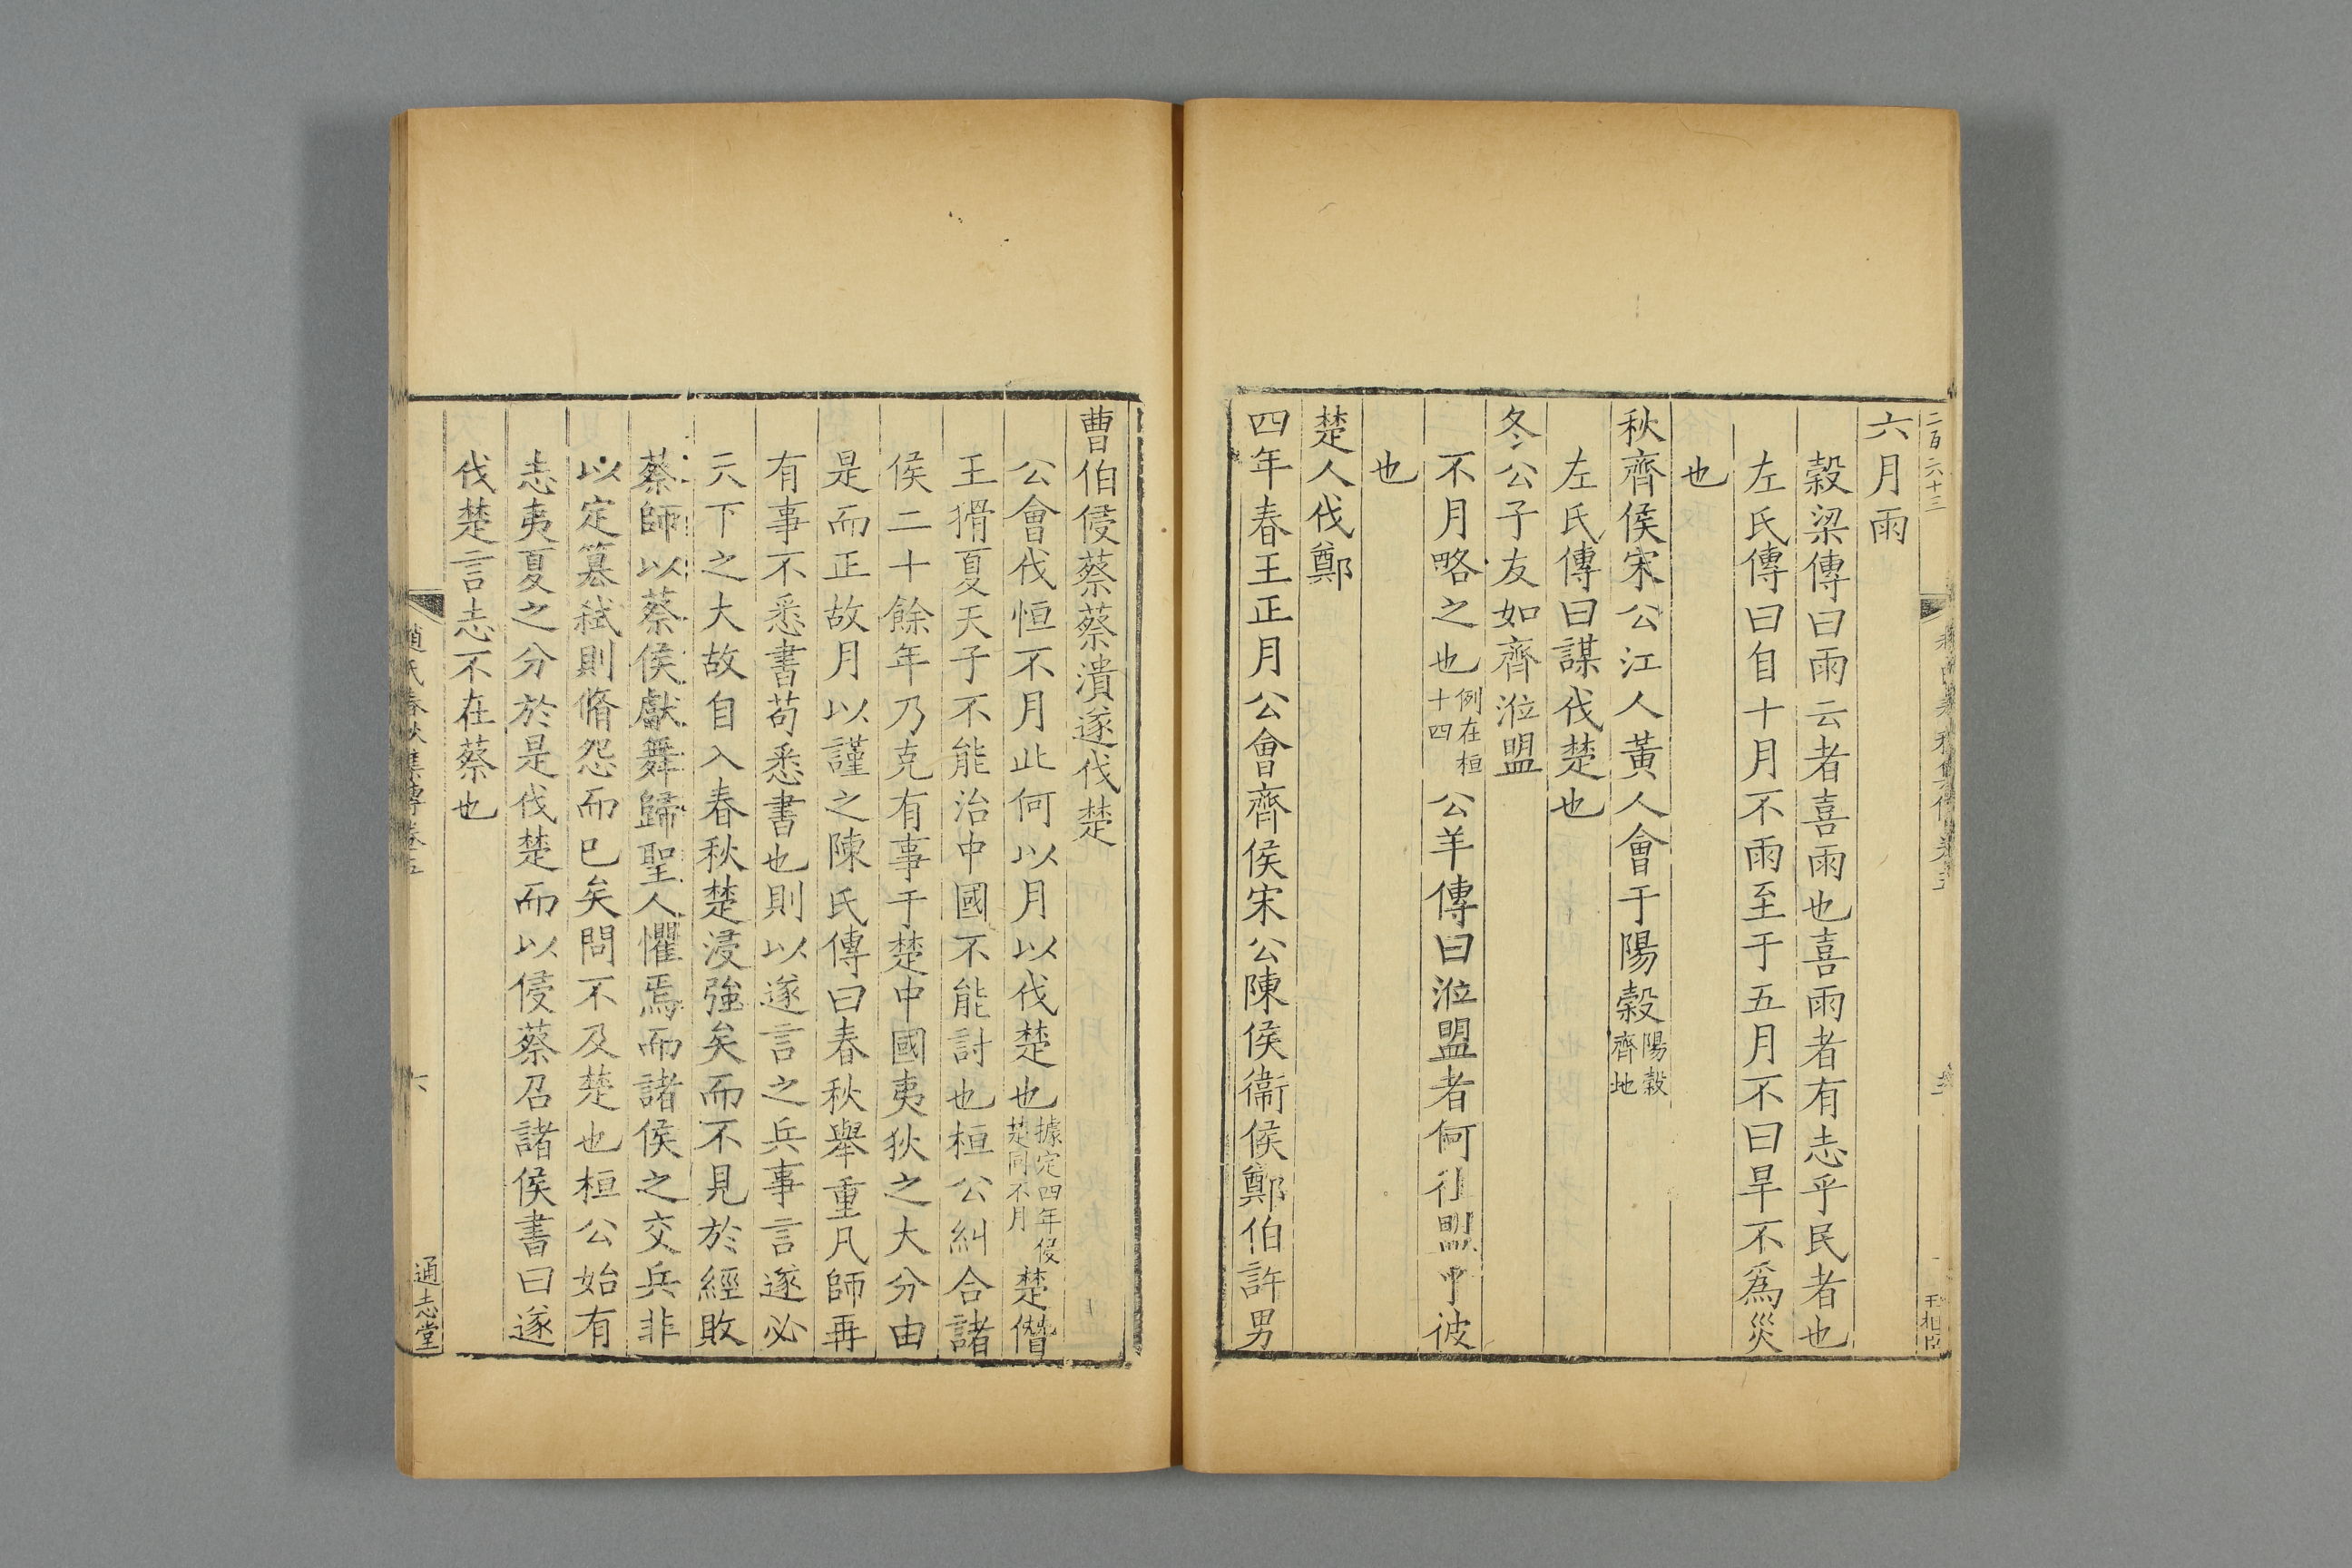 二百六十三
六月雨
穀梁傳曰雨云者喜雨也喜雨者有志乎民者也
左氏傳曰自十月不雨至于五月不曰旱不爲災
也
秋齊侯宋公江人黃人會于陽穀陽穀齊地
左氏傳曰謀伐楚也
冬公子友如齊涖盟
不月略之也例在桓十四公羊傳曰涖盟者何往盟乎彼
也
楚人伐鄭
四年春王正月公會齊侯宋公陳侯衞侯鄭伯許男
曹伯侵蔡蔡潰遂伐楚
公會伐恒不月此何以月以伐楚也據定四年侵楚同不月楚僭
王猾夏天子不能治中國不能討也桓公糾合諸
侯二十餘年乃克有事于楚中國夷狄之大分由
是而正故月以謹之陳氏傳曰春秋舉重凡師再
有事不悉書苟悉書也則以遂言之兵事言遂必
天下之大故自入春秋楚浸強矣而不見於經敗
蔡師以蔡侯獻舞歸聖人懼焉而諸侯之交兵非
以定簒弑則脩怨而已矣問不及楚也桓公始有
志夷夏之分於是伐楚而以侵蔡召諸侯書曰遂
伐楚言志不在蔡也
趙氏春秋集傳卷五
六
通志堂